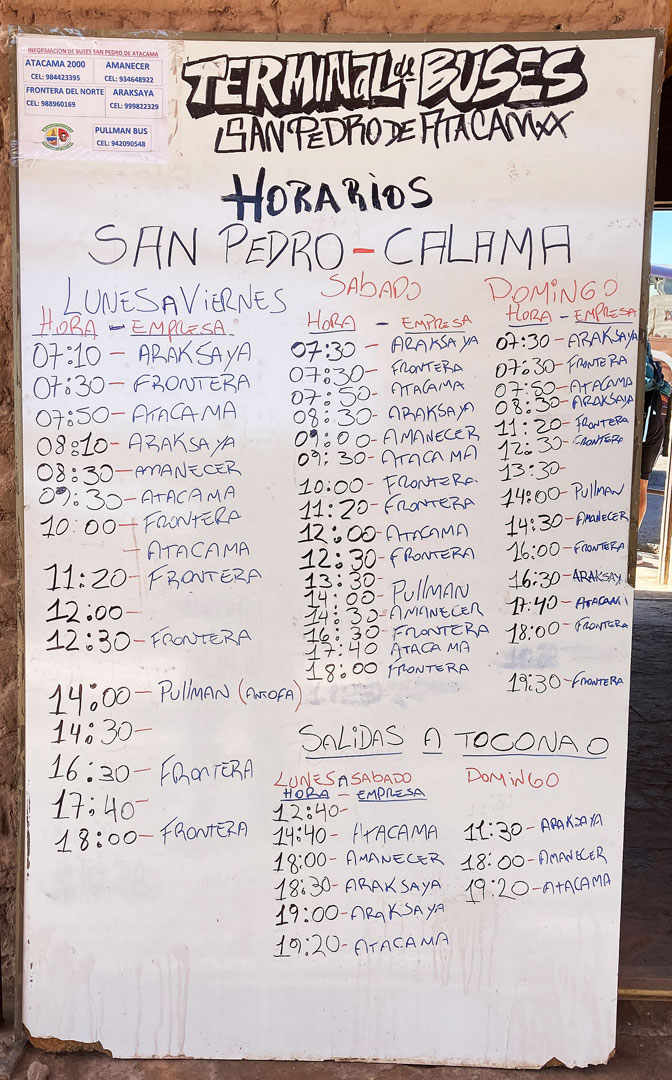 INFORMACION DE BUSES SAN PEDRO DE ATACAMA
ATACAMA 2000
CEL: 984423395
AMANECER
CEL: 934648922
FRONTERA DEL NORTE
CEL: 988960169
ARAKSAYA
CEL: 999822329
PULLMAN BUS
CEL: 942090548
TERMINAL de BUSES
SAN PEDRO DE ATACAMXX
HORARIOS
SAN PEDRO - CALAMA
LUNES A VIERNES
HORA - EMPRESA
07:10 - ARAKSAYA
07:30 - FRONTERA
07:50 - ATACAMA
08:10 - ARAKSAYA
08:30 - AMANECER
09:30 - ATACAMA
10:00 - FRONTERA
- ATACAMA
11:20 - FRONTERA
12:00 -
12:30 - FRONTERA
14:00 - PULLMAN (ANTOFA)
14:30 -
16:30 - FRONTERA
17:40 -
18:00 - FRONTERA
SABADO
HORA - EMPRESA
07:30 - ARAKSAYA
07:30 - FRONTERA
07:50 - ATACAMA
08:30 - ARAKSAYA
09:00 - AMANECER
09:30 - ATACAMA
10:00 - FRONTERA
11:20 - FRONTERA
12:00 - ATACAMA
12:30 - FRONTERA
13:30 -
14:00 - PULLMAN
14:30 - AMANECER
16:30 - FRONTERA
17:40 - ATACAMA
18:00 FRONTERA
DOMINGO
HORA - EMPRESA
07:30 - ARAKSAYA
07:30 - FRONTERA
07:50 - ATACAMA
08:30 - ARAKSAYA
11:20 - FRONTERA
12:30 - FRONTERA
13:30 -
14:00 - PULLMAN
14:30 - AMANECER
16:00 - FRONTERA
16:30 - ARAKSAY
17:40 - ATACAMA
18:00 - FRONTERA
19:30 - FRONTERA
SALIDAS A TOCONAO
LUNES A SABADO
HORA - EMPRESA
12:40 -
14:40 - ATACAMA
18:00 - AMANECER
18:30 - ARAKSAYA
19:00 - ARAKSAYA
19:20 - ATACAMA
DOMINGO
11:30 - ARAKSAYA
18:00 - AMANECER
19:20 - ATACAMA